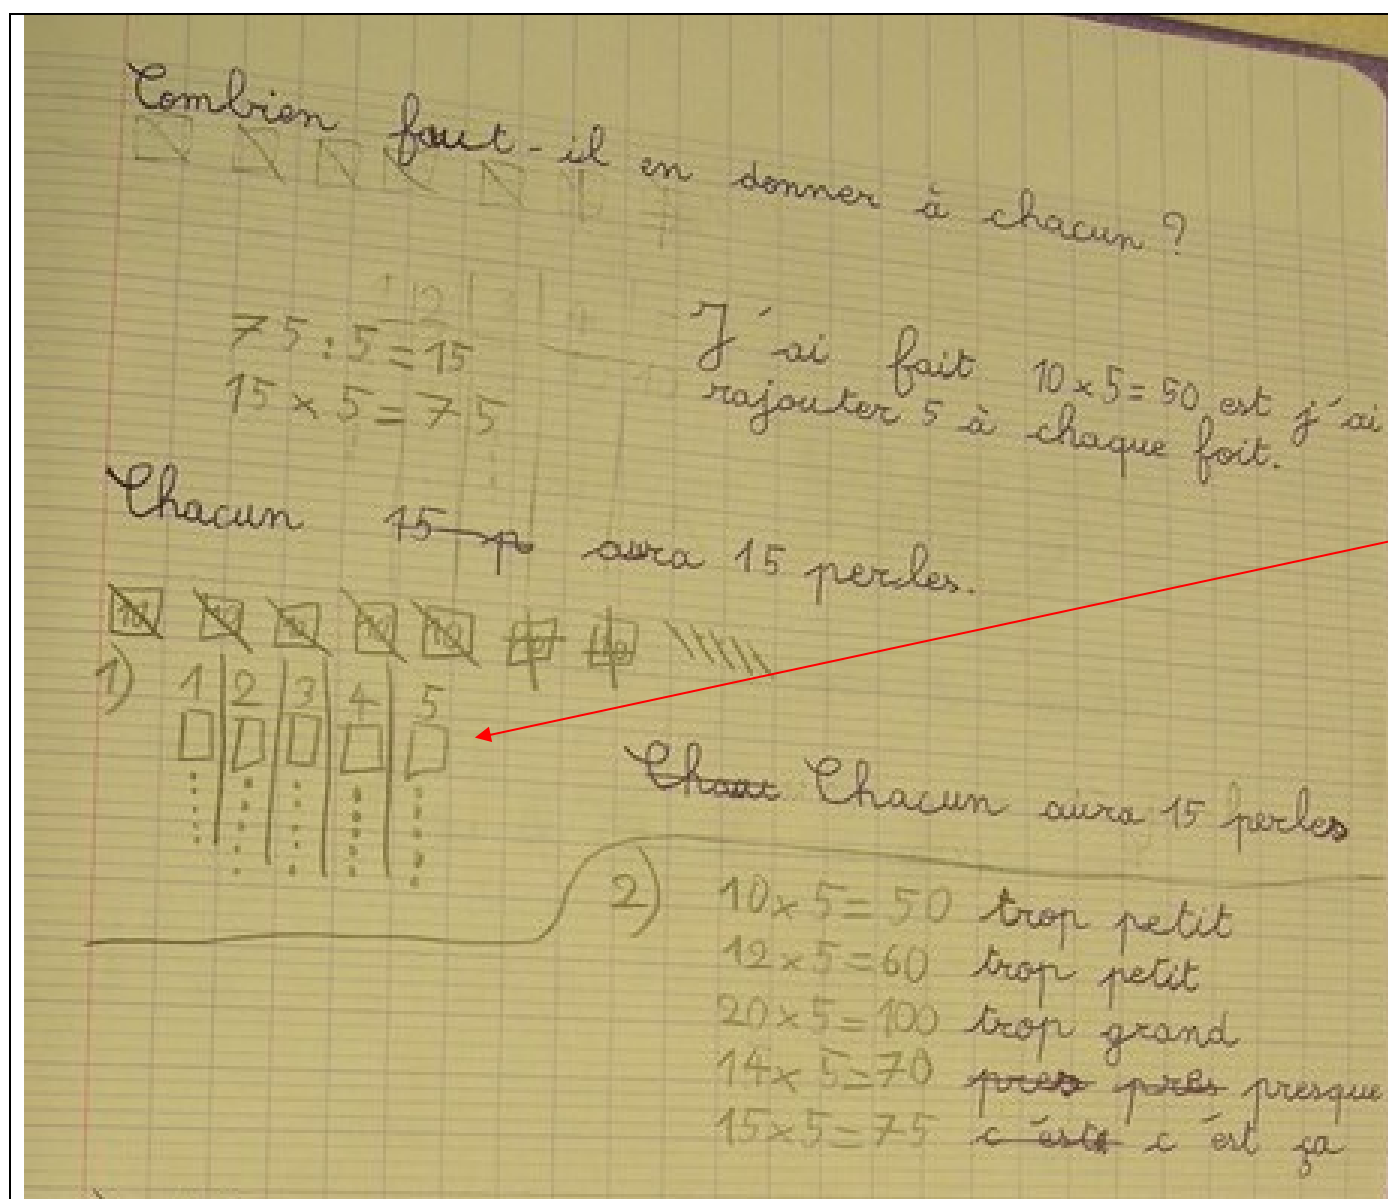 Combien faut-il en donner à chacun ?
75 : 5 = 15
15 × 5 = 75
J'ai fait 10 × 5 = 50 est j'ai
rajouter 5 à chaque foit.
Chacun 15 p aura 15 perles.
10 10 10 10 10 10 10
1) 1 2 3 4 5
Chacun aura 15 perles
2) 10 × 5 = 50 trop petit
12 × 5 = 60 trop petit
20 × 5 = 100 trop grand
14 × 5 = 70 pres près presque
15 × 5 = 75 c'est c'est ça